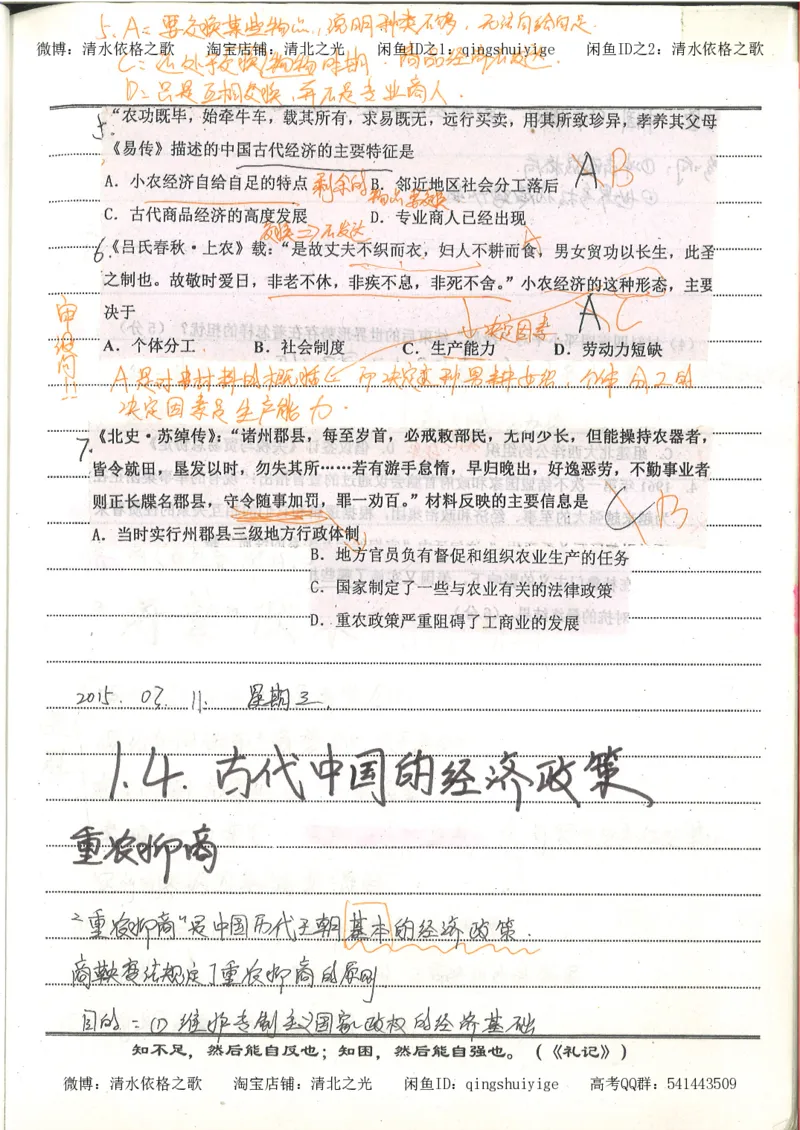 5. A：要交换某些物品，说明种类不够，无法自给自足.
微博：清水依格之歌 淘宝店铺：清北之光 闲鱼ID之1：qingshuiyige 闲鱼ID之2：清水依格之歌
C：还处于交换 时期. 商品经济不发达.
D：只是互相交换，并不是专业商人.
5. “农功既毕，始牵牛车，载其所有，求易既无，远行买卖，用其所致珍异，孝养其父母
《易传》描述的中国古代经济的主要特征是 A B
A．小农经济自给自足的特点 剩余的物品要交换 B．邻近地区社会分工落后
C．古代商品经济的高度发展 D．专业商人已经出现
交换⇒不发达
6. 《吕氏春秋·上农》载：“是故丈夫不织而衣，妇人不耕而食，男女贸功以长生，此圣
之制也。故敬时爱日，非老不休，非疾不息，非死不舍。”小农经济的这种形态，主要
决于 A C
审设问!!
决定因素
A．个体分工 B．社会制度 C．生产能力 D．劳动力短缺
A是对本材料的概括 男耕女织，个体分工的
决定因素是生产能力.
7. 《北史·苏绰传》：“诸州郡县，每至岁首，必戒敕部民，无问少长，但能操持农器者，
皆令就田，垦发以时，勿失其所……若有游手怠惰，早归晚出，好逸恶劳，不勤事业者
则正长牒名郡县，守令随事加罚，罪一劝百。”材料反映的主要信息是 C B
A．当时实行州郡县三级地方行政体制
B．地方官员负有督促和组织农业生产的任务
C．国家制定了一些与农业有关的法律政策
D．重农政策严重阻碍了工商业的发展
2015. 03. 11. 星期三.
1.4. 古代中国的经济政策
重农抑商
“重农抑商”是中国历代王朝基本的经济政策.
商鞅变法规定了重农抑商的原则
目的：(1) 维护专制主义国家政权的经济基础
知不足，然后能自反也；知困，然后能自强也。（《礼记》）
微博：清水依格之歌 淘宝店铺：清北之光 闲鱼ID：qingshuiyige 高考QQ群：541443509